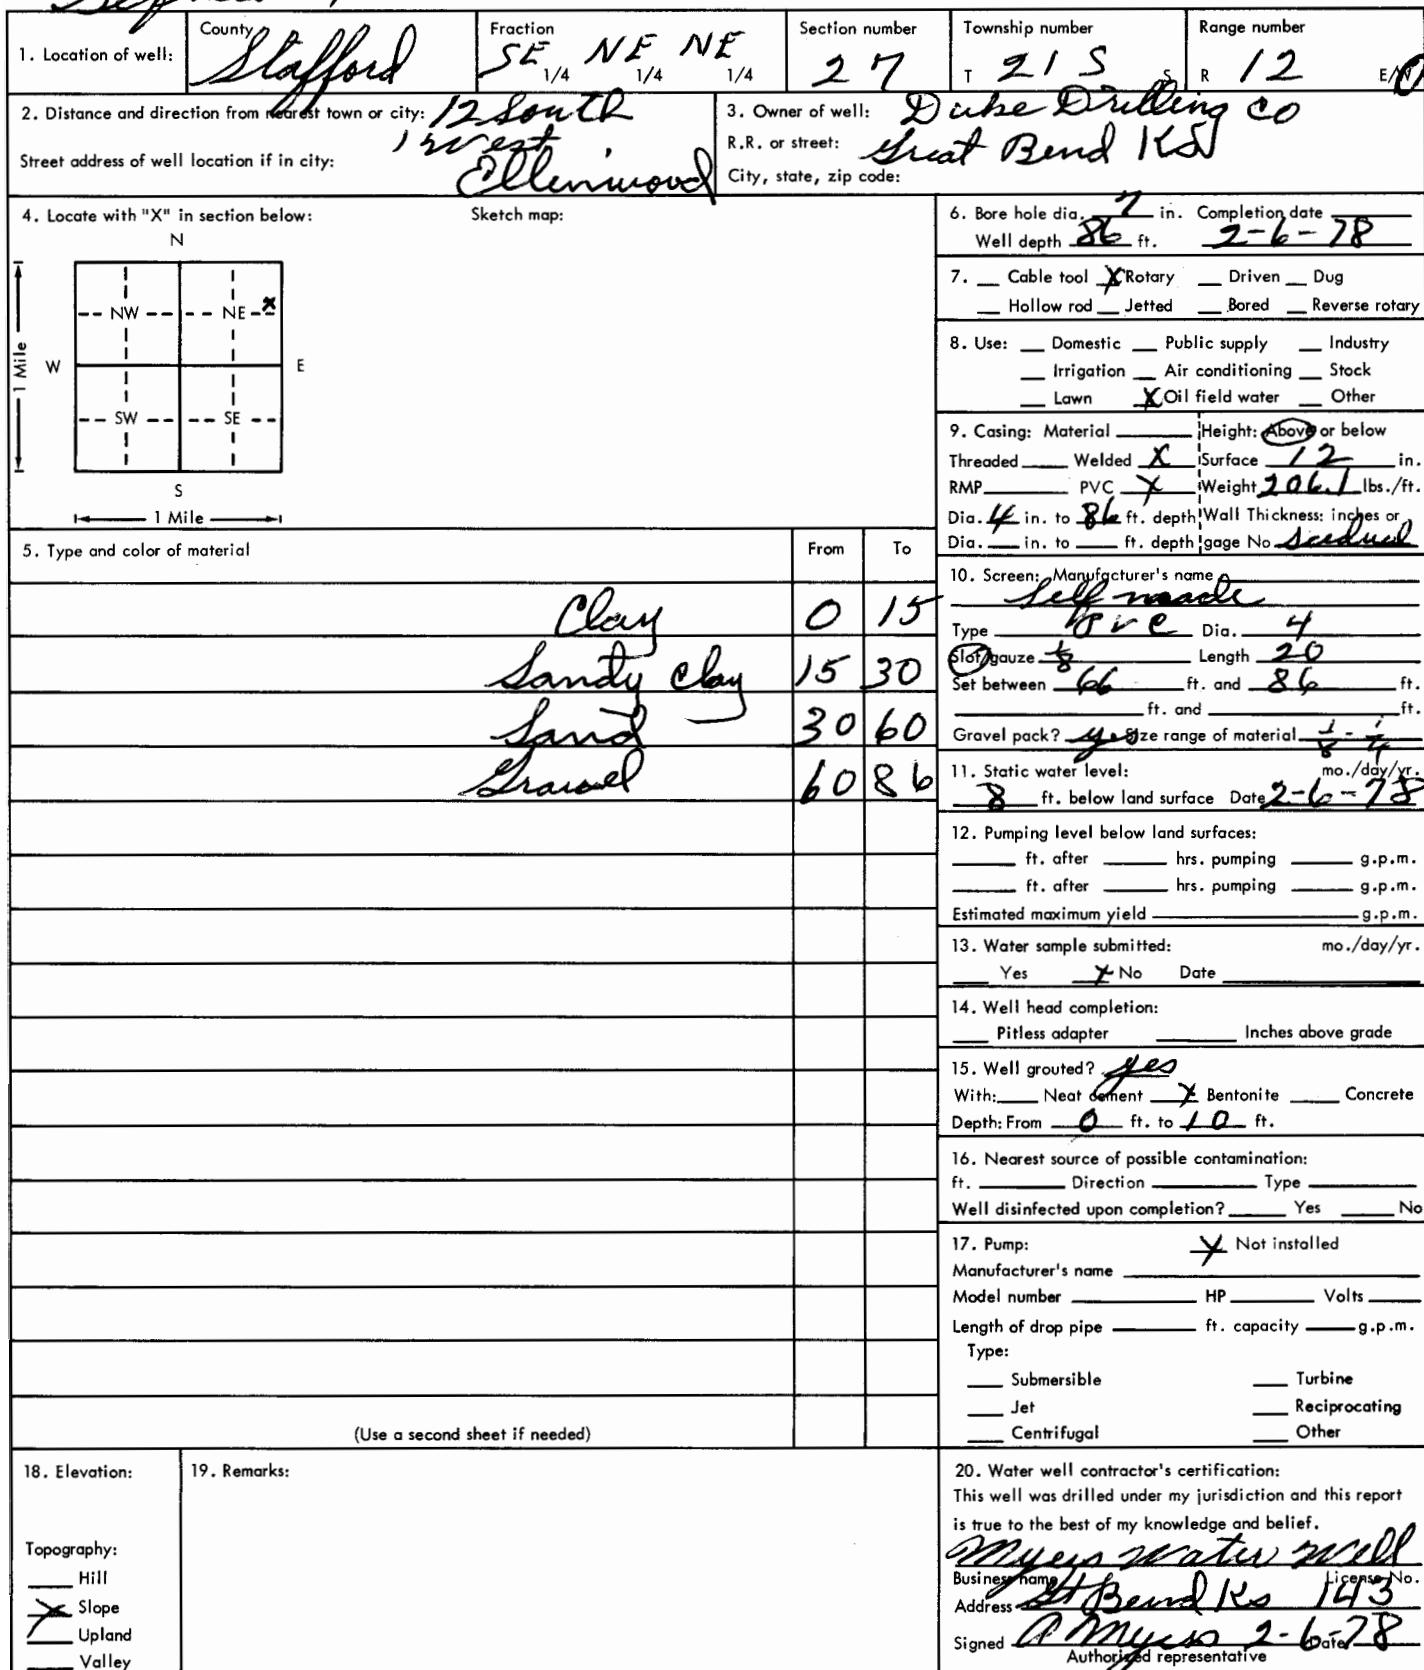 1. Location of well: County Stafford Fraction SE 1/4 NE 1/4 NE 1/4 Section number 27 Township number T 21 S S Range number R 12 E/W
2. Distance and direction from nearest town or city: 12 South
1 west
Street address of well location if in city: Ellinwood
3. Owner of well: Duke Drilling Co
R.R. or street: Great Bend KS
City, state, zip code:
4. Locate with "X" in section below: Sketch map:
N
NW NE X
W E
1 Mile
SW SE
S
1 Mile
5. Type and color of material From To
Clay 0 15
Sandy Clay 15 30
Sand 30 60
Gravel 60 86
(Use a second sheet if needed)
6. Bore hole dia. 7 in. Completion date
Well depth 86 ft. 2-6-78
7. Cable tool X Rotary Driven Dug
Hollow rod Jetted Bored Reverse rotary
8. Use: Domestic Public supply Industry
Irrigation Air conditioning Stock
Lawn X Oil field water Other
9. Casing: Material Height: Above or below
Threaded Welded X Surface 12 in.
RMP PVC X Weight 206.1 lbs./ft.
Dia. 4 in. to 86 ft. depth Wall Thickness: inches or
Dia. in. to ft. depth gage No
10. Screen: Manufacturer's name
Self made
Type PVC Dia. 4
Slot/gauze 1/8 Length 20
Set between 66 ft. and 86 ft.
ft. and ft.
Gravel pack? yes Size range of material 1/8 - 1/4
11. Static water level: mo./day/yr.
8 ft. below land surface Date 2-6-78
12. Pumping level below land surfaces:
ft. after hrs. pumping g.p.m.
ft. after hrs. pumping g.p.m.
Estimated maximum yield g.p.m.
13. Water sample submitted: mo./day/yr.
Yes X No Date
14. Well head completion:
Pitless adapter Inches above grade
15. Well grouted? yes
With: Neat cement X Bentonite Concrete
Depth: From 0 ft. to 10 ft.
16. Nearest source of possible contamination:
ft. Direction Type
Well disinfected upon completion? Yes No
17. Pump: X Not installed
Manufacturer's name
Model number HP Volts
Length of drop pipe ft. capacity g.p.m.
Type:
Submersible Turbine
Jet Reciprocating
Centrifugal Other
18. Elevation:
Topography:
Hill
X Slope
Upland
Valley
19. Remarks:
20. Water well contractor's certification:
This well was drilled under my jurisdiction and this report
is true to the best of my knowledge and belief.
Myers Water Well
Business name License No.
Address Gt Bend Ks 143
Signed A Myers 2-6-78 Date
Authorized representative